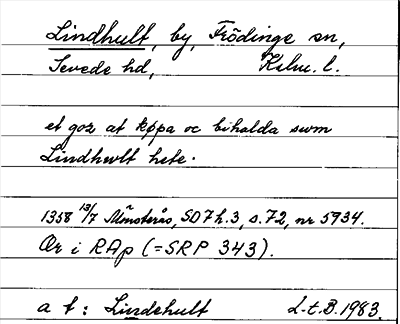 Lindhult, by, Frödinge sn,
Sevede hd, Kalm. l.
et goz at køpa oc bihalda swm
Lindhwlt hete.
1358 13/7 Mönsterås, SD 7 h. 3, s. 72, nr 5934.
Or i RAp (=SRP 343).
a t: Lindehult L-t.B. 1983.